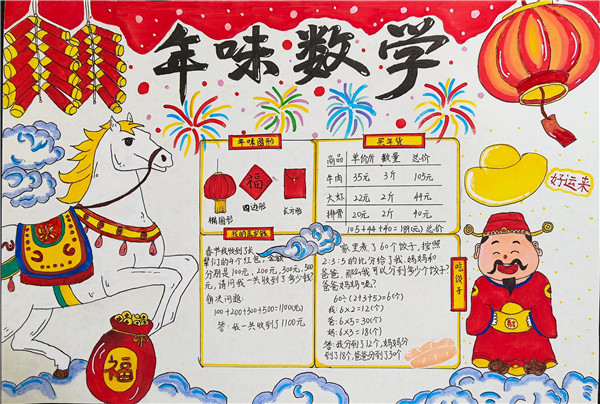 年味数学
年味图形
福
椭圆形
四边形
长方形
买年货
商品 单价/斤 数量 总价
牛肉 35元 3斤 105元
大虾 22元 2斤 44元
排骨 20元 2斤 40元
105+44+40=189(元) 总价
好运来
我的压岁钱
春节我收到
辈们的4个红包,金额
分别是100元,200元,300元,500
元,请问我一共收到了多少钱?
解决问题:
100+200+300+500=1100(元)
答:我一共收到了1100元.
吃饺子
家里煮了60个饺子,按照
2:3:5的比分给了我、妈妈和
爸爸,那么我可以分到多少个饺子?
爸爸妈妈呢?
60÷(2+3+5)=6(个)
我:6×2=12(个)
爸:6×5=30(个)
妈:6×3=18(个)
答:我分到了12个,妈妈分
到了18个,爸爸分到了30个
福
财